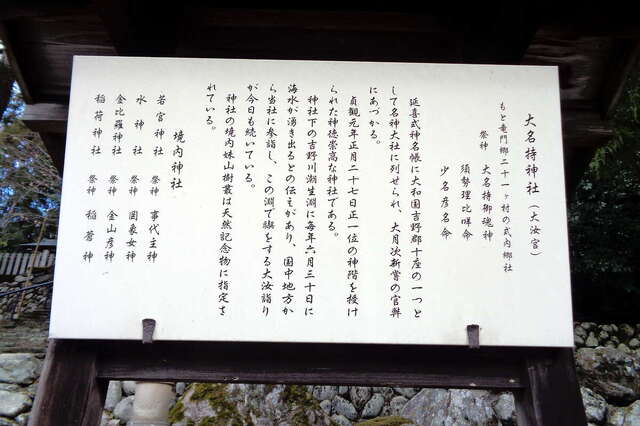 大名持神社（大汝宮）
もと竜門郷二十一ヶ村の式内郷社
祭神 大名持御魂神
須勢理比咩命
少名彦名命
延喜式神名帳に大和国吉野郡十座の一つと
して名神大社に列せられ、大月次新嘗の官幣
にあづかる。
貞観元年正月二十七日正一位の神階を授け
られた神徳崇高な神社である。
神社下の吉野川潮生淵に毎年六月三十日に
海水が湧き出るとの伝えがあり、国中地方か
ら当社に参詣し、この淵で禊をする大汝詣り
が今日も続いている。
神社の境内妹山樹叢は天然記念物に指定さ
れている。
境内神社
若宮神社 祭神 事代主神
水神社 祭神 罔象女神
金比羅神社 祭神 金山彦神
稲荷神社 祭神 稲蒼神